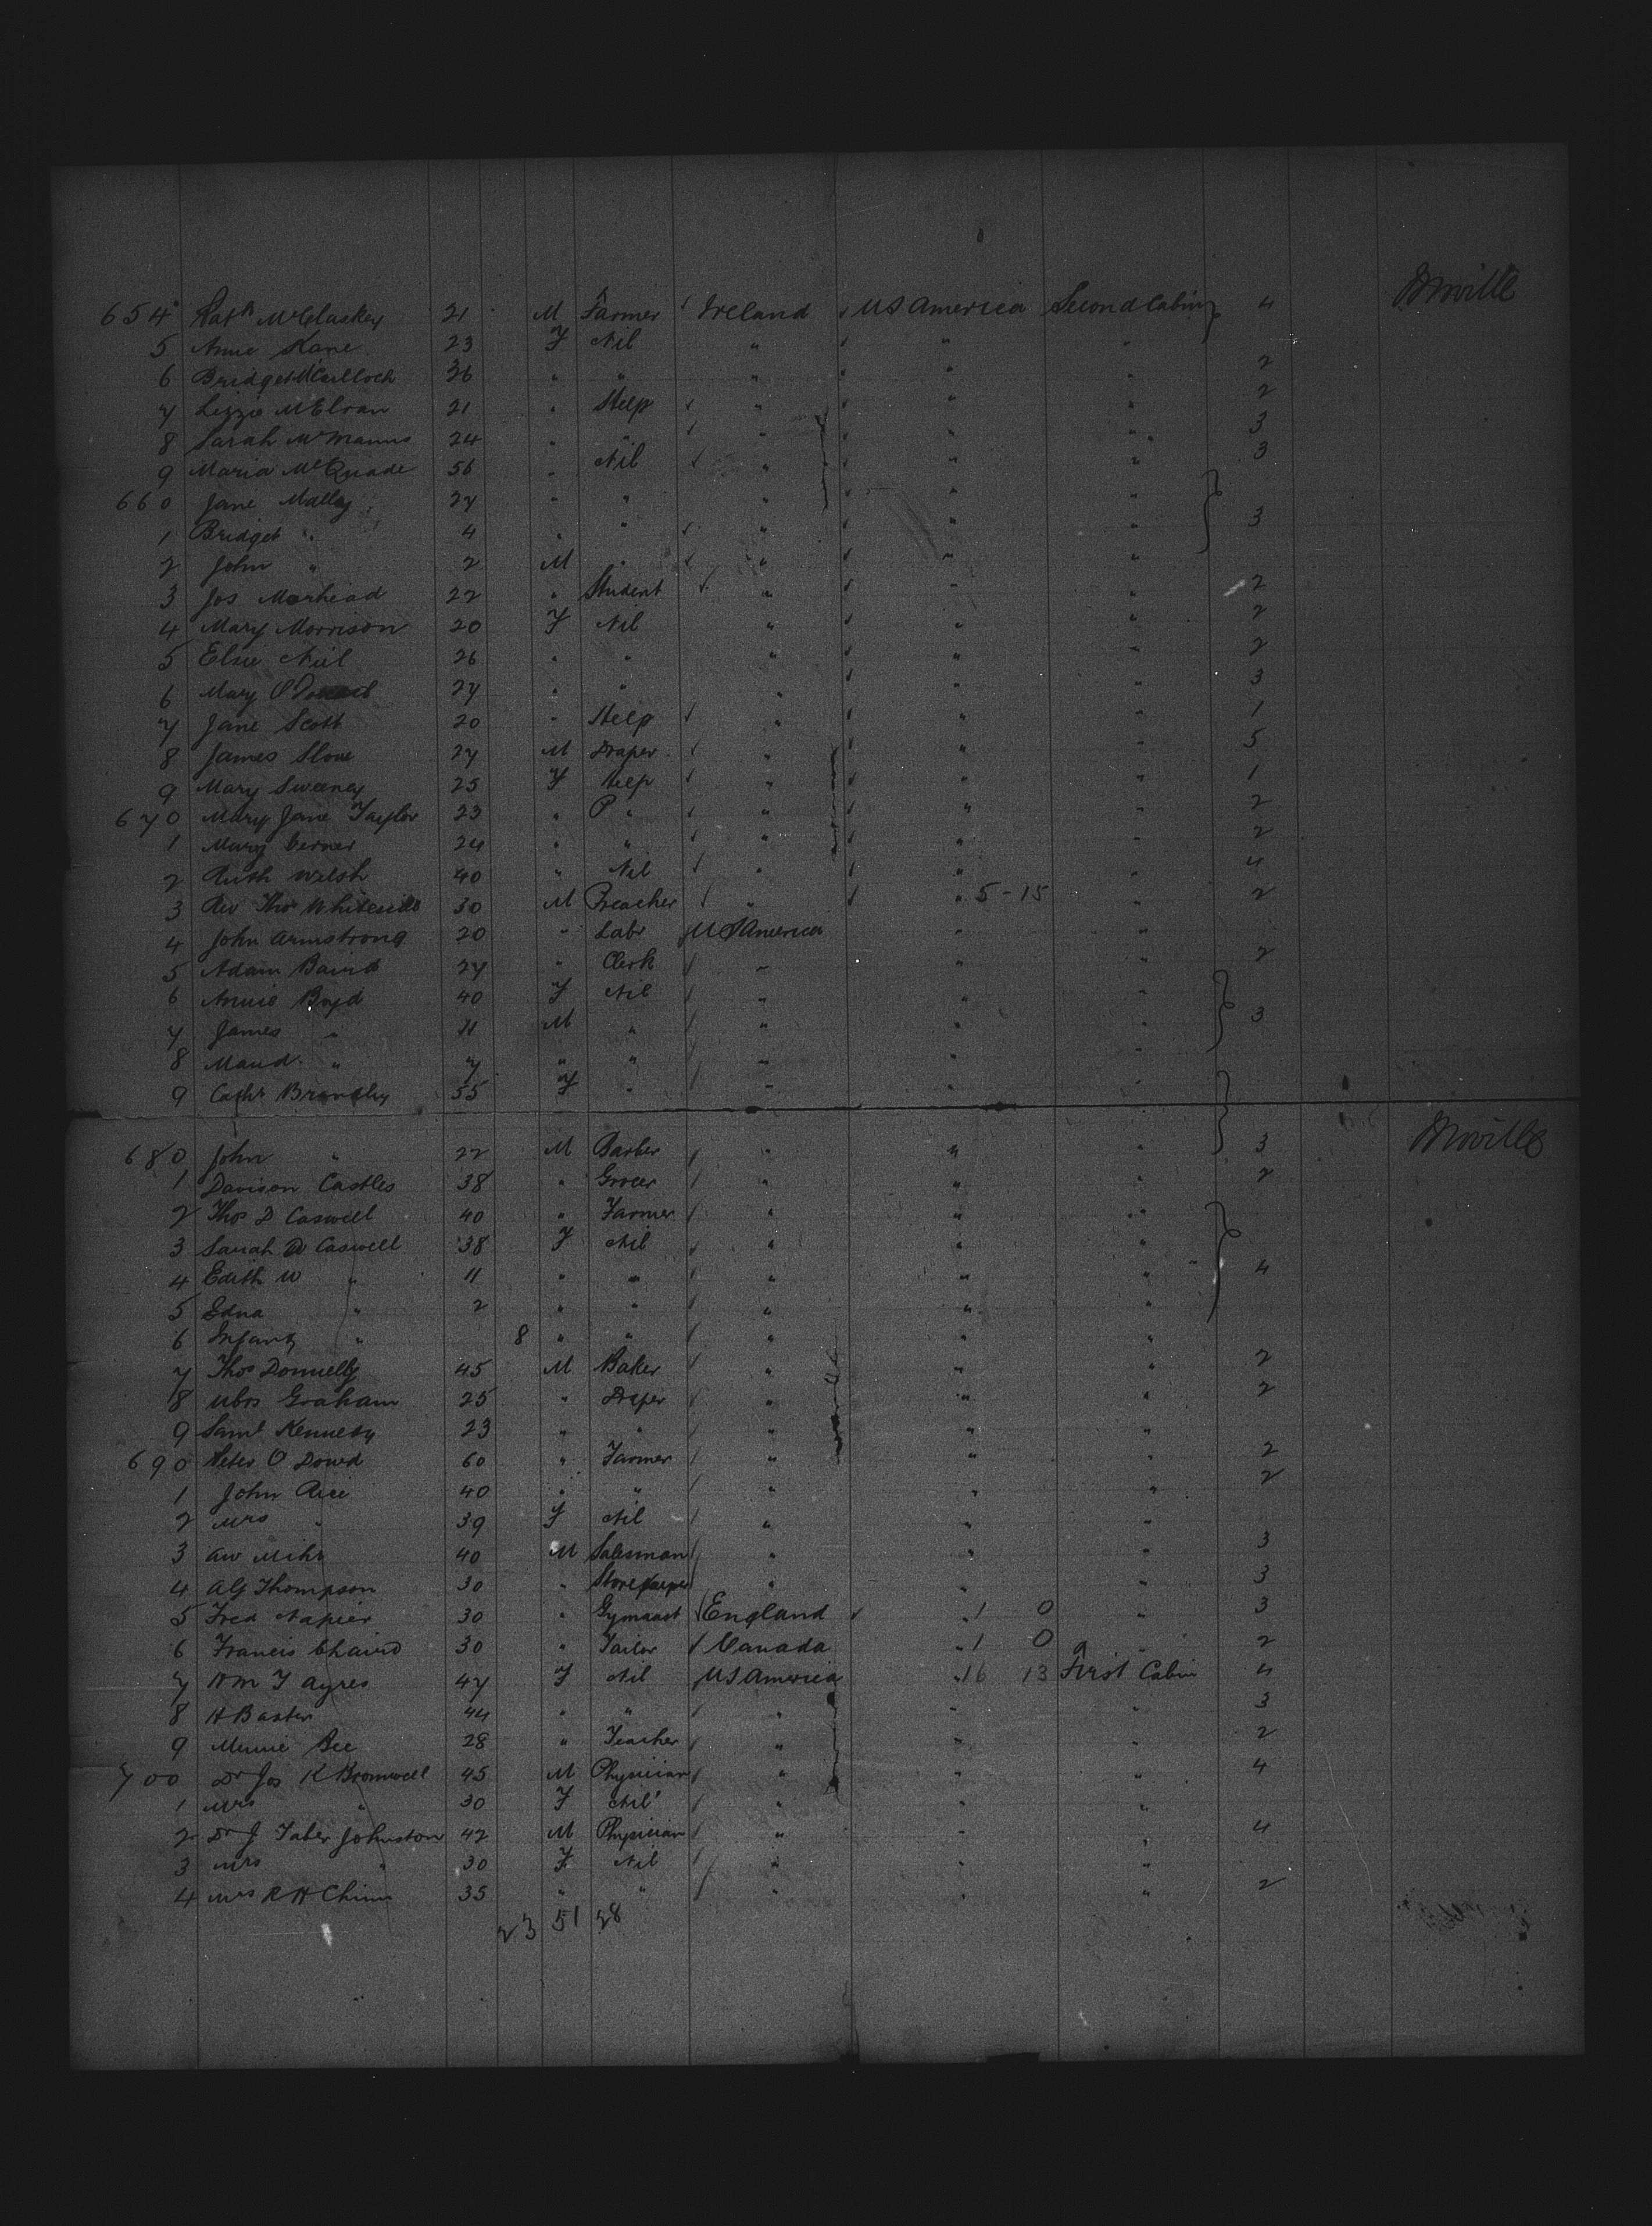 654 McClaskey 21 M Farmer Ireland US America Second Cabin 4 Mville
5 Annie Kane 23 F Nil " " "
6 Bridget McCulloch 36 " " " " " 2
7 Lizzie McElvan 21 " Help " " " 2
8 Sarah McManus 24 " " " " " 3
9 Maria McQuade 56 " Nil " " " 3
660 Jane Malley 27 " " " " "
1 Bridget " 4 " " " " " 3
2 John " 2 M " " " "
3 Jos Morhead 22 " Student " " " 2
4 Mary Morrison 20 F Nil " " " 2
5 Elsie Neil 26 " " " " " 2
6 Mary 27 " " " " " 3
7 Jane Scott 20 " Help " " " 1
8 James Slone 27 M Draper " " " 5
9 Mary Sweeney 25 F Help " " " 1
670 Mary Jane Taylor 23 " " " " " 2
1 Mary Verner 24 " " " " " 2
2 Ruth Welsh 40 " Nil " " " 4
3 Rev Thos Whiteside 30 M Preacher " " 5-15 2
4 John Armstrong 20 " Labr US America " "
5 Adam Baird 27 " Clerk " " " 2
6 Annie Boyd 40 F Nil " " "
7 James " 11 M " " " " 3
8 Maud " 7 " " " " "
9 Cathr Brandley 55 F " " " "
680 John " 22 M Barber " " " 3 Mville
1 Davison Castles 38 " Grocer " " " 2
2 Thos D Caswell 40 " Farmer " " "
3 Sarah W Caswell 38 F Nil " " "
4 Edith W " 11 " " " " " 4
5 Edna " 2 " " " " "
6 Infant " 8 " " " " "
7 Thos Donnelly 45 M Baker " " " 2
8 Graham 25 " Draper " " " 2
9 Saml Kennedy 23 " " " " "
690 Peter O Dowd 60 " Farmer " " " 2
1 John Rice 40 " " " " " 2
2 Mrs " 39 F Nil " " "
3 Aw 40 M Salesman " " " 3
4 Alf Thompson 30 " Storekeeper " " " 3
5 Fred Napier 30 " Gymnast England " 1 0 " 3
6 Francis 30 " Tailor Canada " 1 0 " 2
7 Wm F Ayres 47 F Nil US America " 16 13 First Cabin 4
8 H Baxter 44 " " " " " 3
9 Minnie Bee 28 " Teacher " " " 2
700 Dr Jos K Bromwell 45 M Physician " " " 4
1 Mrs " 30 F Nil " " "
2 Dr J Taber Johnston 42 M Physician " " " 4
3 Mrs " 30 F Nil " " "
4 Mrs R H Chinn 35 " " " " " 2
23 51 28